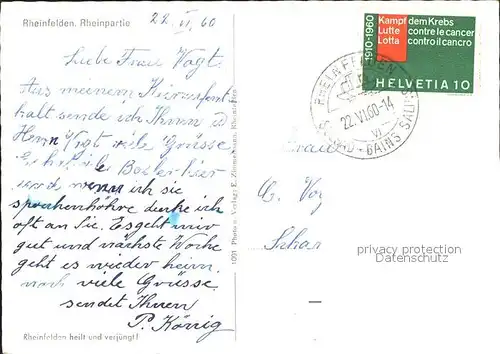 Rheinfelden. Rheinpartie
22. VI. 60
Liebe Frau Vogt.
Aus meinem
halt sende ich Ihnen u
Herrn Vogt viele Grüsse
Es hat viele Basler hier
und wenn ich sie
sprechen höhre denke ich
oft an Sie. Es geht mir
gut und nächste Woche
geht es wieder heim
noch viele Grüsse
sendet Ihnen
P. König
Rheinfelden heilt und verjüngt!
1001 Photo u. Verlag: E. Zimmermann, Rheinfelden
1910-1960
Kampf dem Krebs
Lutte contre le cancer
Lotta contro il cancro
HELVETIA 10
RHEINFELDEN
22.VI.60-14
VI
BAINS SALINS
Frau
C. Vog
Schar
privacy protection
Datenschutz